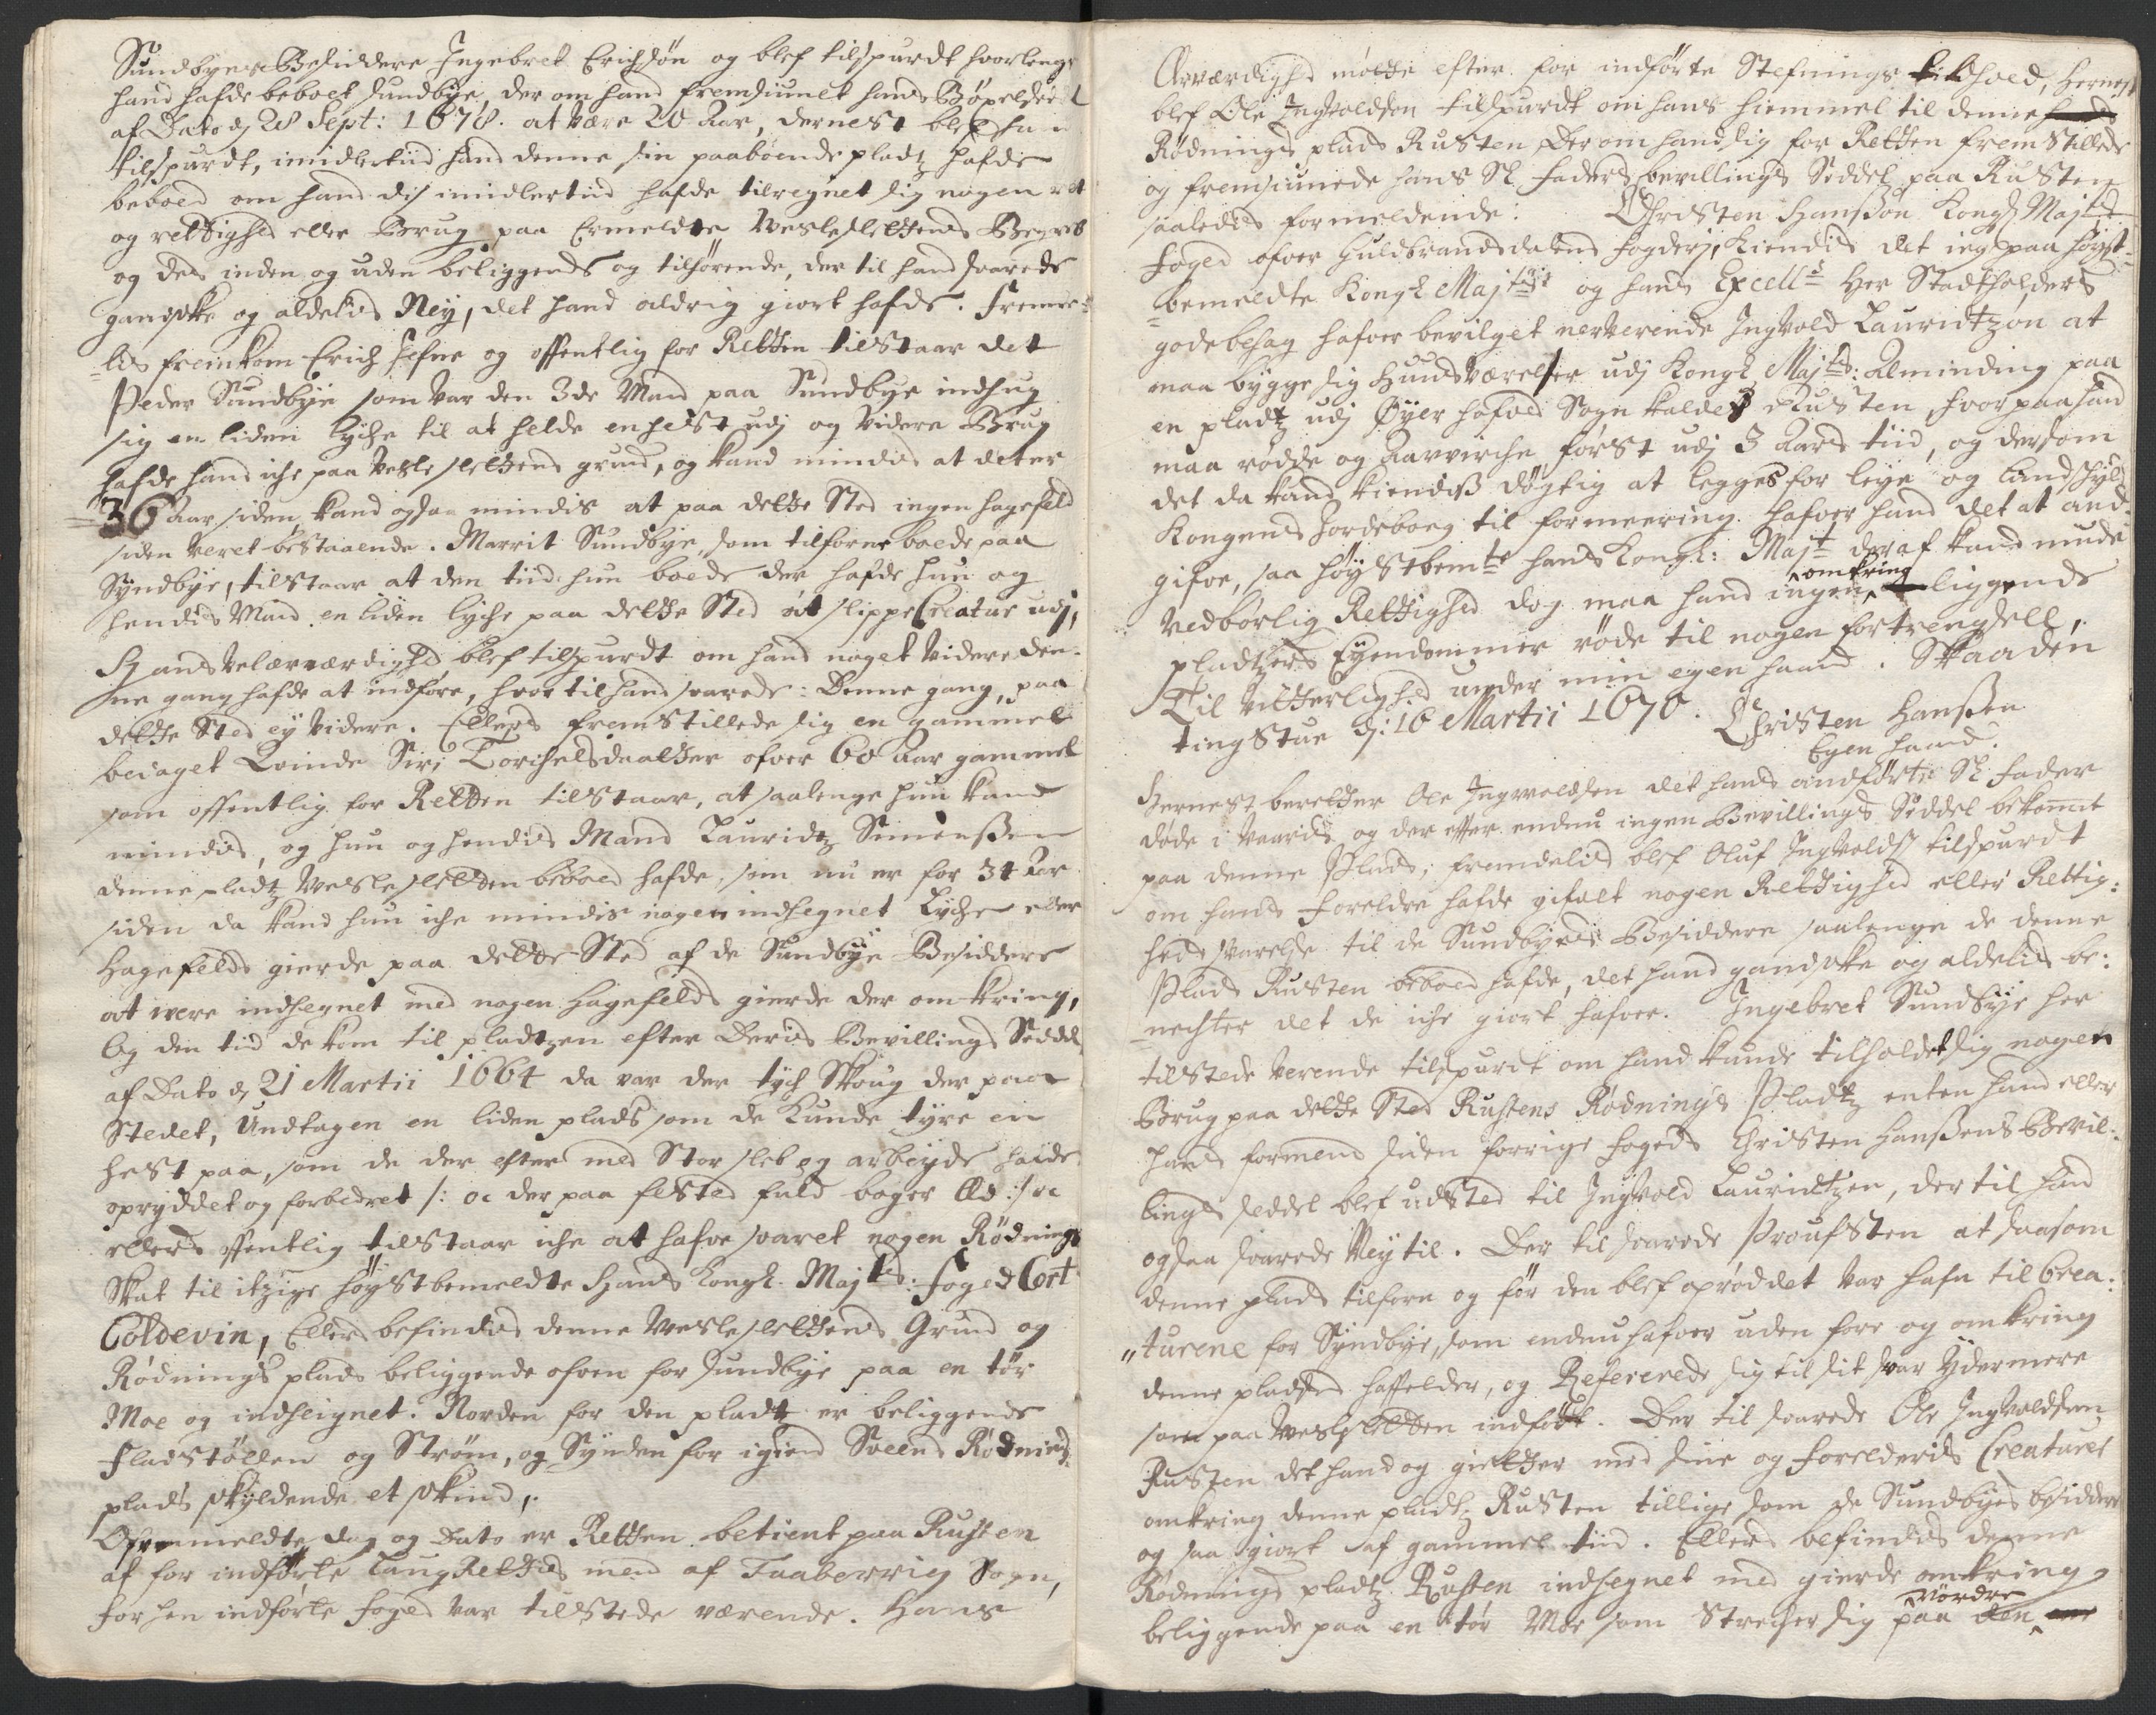 Sundbyes Besiddere Ingebret Erichsøn og blef tilspurdt hvorlenge
hand hafde beboet Sundbye, der om hand fremviiste hans Böxelsedel
af Dato dj 28 Sept: 1678. at være 20 Aar, dernest blef hand
tilspurdt, imidlertiid hand denne sin paaboende pladtz hafde
beboed om hand dis imidlertiid hafde tilregnet sig nogen ret
og rettighed eller Brug paa Ermeldte Vesleslettens Begreb
og des inden og uden beliggende og tilhörende, der til hand svarede
gandske og aldelis Ney, det hand aldrig giort hafde. Fremde-
lis fremkom Erich Hefne og offentlig for Retten tilstaar det
Peder Sundbye som var den 3de Mand paa Sundbye indhug
sig en liden lyche til at helde en hest udj og videre Brug
hafde hand iche paa Vesle slettens grund, og kand mindis at det er
36 Aar siden, kand ogsaa mindis at paa dette Sted ingen hagefeld
siden veret bestaaende. Marrit Sundbye, som tilforne boede paa
Syndbye, tilstaar at den tiid hun boede der hafde hun og
hendis Mand en liden lyche paa dette Sted at slippe Creatur udj,
Hands velærværdighed blef tilspurdt om hand noget videre den-
ne gang hafde at indföre, hvor til hand svarede: Denne gang, paa
dette Sted ej videre. Ellers fremstillede sig en gammel
bedaget Qvinde Siri Torchelsdaatter ofver 60 Aar gammel
som offentlig for Retten tilstaar, at saalenge hun kand
mindis, og hun og hendis Mand Lauridtz Simenssen
denne pladtz Vesle sletten beboed hafde, som nu er for 34 Aar
siden da kand hun iche mindis nogen indhegnet Lyche eller
Hagefelds gierde paa dette Sted af de Sundbye Besiddere
at were indhegnet med nogen Hagefelds gierde der omkring,
Og den tiid de kom til pladtzen efter Deris Bevillings Seddel
af Dato dj 21 Martii 1664 da var der tych Skoug der paa
Stedet, Undtagen en liden plads som de Kunde tyre en
hest paa, som de der efter med Stor sleb og arbeyde hafde
opryddet og forbedret /: oc der paa fested fuld boger Æd :/ oc
ellers offentlig tilstaar iche at hafve svaret nogen Rødnings
Skat til itzige Höystbemeldte Hans Kongl. Majtes: Foged Cort
Coldevin, Ellers befindis denne Vesleslettens Grund og
Rødnings plads beliggende ofven for Sundbye paa en tör
Moe og indheignet. Norden for den pladtz er beliggende
Fladstöllen og Ström, og Synden for igien Sveens Rødnings
plads skyldende et skind,
Ofvenmeldte dag og Dato er Retten betient paa Rusten
af for indförte Laug Rettis mend af Faaberrig Sogn,
forhen indförte foged var tilstede værende. Hans
Ærværdighd mötte efter for indförte Stefnings tilhold, Hernest
blef Ole Ingvoldsøn tilspurdt om hans hiemmel til denne
Rødnings plads Rusten, Der om hand sig for Retten fremstillede
og fremviiste hans Sl. Faders bevillings Seddel paa Rusten
saaledis formeldende: Christen Hansßøn Kongl Majts
Foged ofver Guldbrandsdalens fogderj, Kiendis det ieg paa höyst-
bemeldte Kongl Majts og hans Excells Her Stadtholders
godebehag hafver bevilget nerverende Ingvold Lauridtzøn at
maa bygge sig Huusværelser udj Kongl Majts: Alminding paa
en pladtz udj Øyer hofved Sogn kaldes Rusten, hvor paa hand
maa rödde og Aarvirche först udj 3 Aars tiid, og dersom
det da kand kiendiss dögtig at legges for leye og landschyld
Kongens Jordeboeg til formeering. Hafver hand det at and-
gifve, saa höystbemte hans Kongl: Majt der af kand nyde
vedbörlig Rettighed dog maa hand ingen omkring liggende
pladtzers Eyendommer röde til nogen fortrengsell,
Til vitterlighed under min egen haand. Skaaden
tingstue dj: 16 Martii 1670. Christen Hanßen
Egen haand.
Hernest beretter Ole Ingvoldsen det hans andförte Sl. Fader
døde i Vaaris og der efter endnu ingen Bevillings Seddel bekomit
paa denne Plads; fremdelis blef Oluf Ingvolds tilspurdt
om hans Foreldre hafde gifvet nogen Rettighed eller Rettig:
heds svarelse til de Sundbyes Besiddere saalenge de denne
Plads Rusten beboed hafde, det hand gandske og aldelis be:
nechter det de iche giort hafver. Ingebret Sundbye her
tilstede verende tilspurdt om hand kunde tilholdet sig nogen
Brug paa dette Sted Rustens Rødnings Pladtz enten hand eller
hans formend siden forrige Fogeds Christen Hanßens Bevil:
lings seddel blef udsted til Ingvold Lauridtzen, der til hand
ogsaa svarede Ney til. Der til svarede Proufsten at saasom
denne plads tilforn og för den blef oprøddet var hafn til Crea:
turene for Syndbye, som endnu hafver uden fore og omkring
denne pladtsen haffelder, og Refererede sig til sit svar ydermere
som paa Vesle sletten indfört. Der til svarede Ole Ingvoldsen
Rusten det hand og gietter med sine og Forelderis Creature
omkring denne pladtz Rusten tillige som de Sundbyes besiddere
og saa giort af gammel tiid. Ellers befindis denne
Rødnings pladtz Rusten indhegnet med gierde omkring,
beliggende paa en tör Moe som Strecher sig paa den nordre